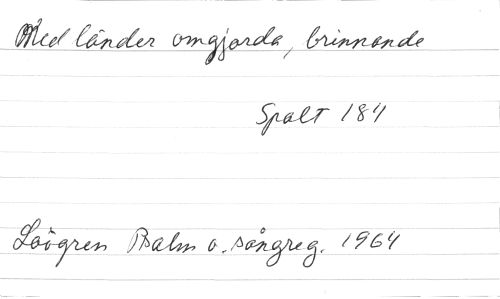 Med länder omgjorda, brinnande
Spalt 184
Löögren Psalm o. sångreg. 1964